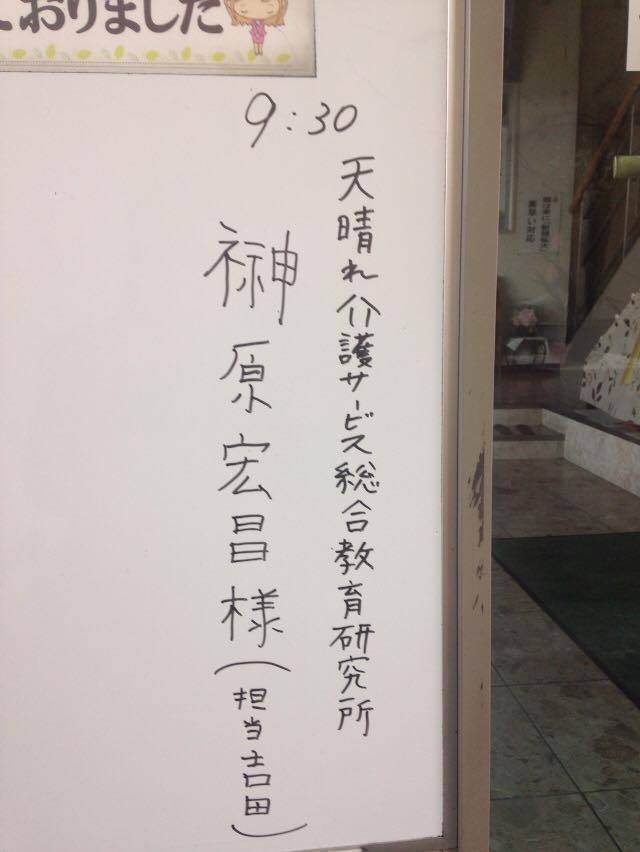 おりました
9:30
天晴れ介護サービス総合教育研究所
榊原宏昌様(担当吉田)
素早い対応